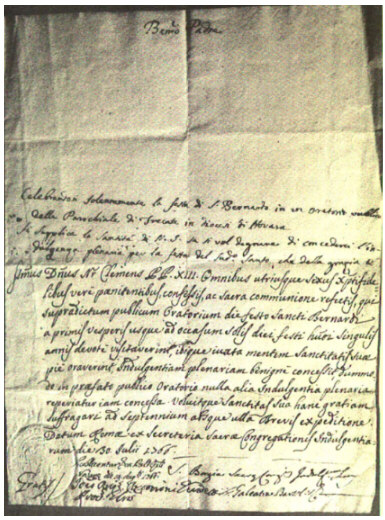 Beño Padre
Celebrandosi solennemente la festa di S. Bernardo in un oratorio
della Parrocchiale di in diocesi di Novara
Si supplica la Santità di N. S. se si vol degnare di concedere
indulgenza plenaria per la festa del Santo, che della grazia
Sm̃us Dñus Nr̃ Clemens P.P. XIII. Omnibus utriusque Sexus Xpifide-
libus veri pœnitentibus, confessis, ac Sacra communione refectis, qui
supradictum publicum Oratorium die festo Sancti Bernardi
a primis vesperis usque ad occasum Solis diei festi huius singulis
annis devote visitaverint, ibique iuxta mentem Sanctitatis suæ
pie oraverint, Indulgentiam plenariam benigne concessit; dummo-
do in præfato publico Oratorio nulla alia Indulgentia plenaria
reperiatur iam concessa. voluitque Sanctitas sua hanc gratiam
suffragari ad Septennium absque ulla Brevis expeditione.
Datum Romæ ex Secretaria Sacræ Congregationis Indulgentia-
rum die 30 Iulii 1766
S. Indulg.
Gratis